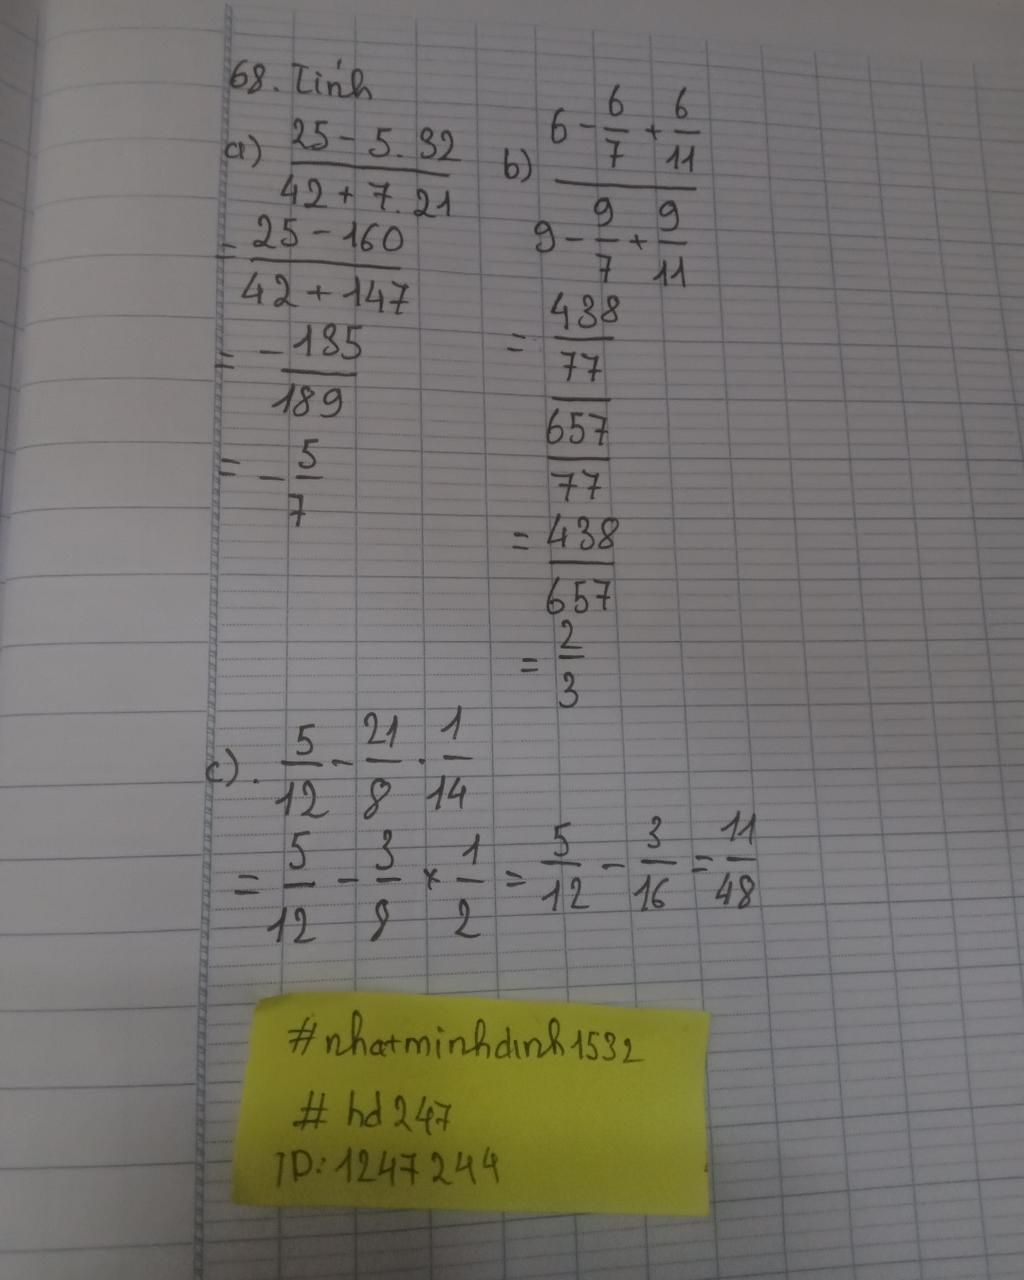 68. Tính
a) 25 - 5. 32
42 + 7. 21
= 25 - 160
42 + 147
= - 135
189
= - 5
7
b) 6 - 6/7 + 6/11
9 - 9/7 + 9/11
= 438
77
657
77
= 438
657
= 2
3
c). 5/12 - 21/8 . 1/14
= 5/12 - 3/8 × 1/2 = 5/12 - 3/16 = 11/48
#nhatminhdinh1532
# hd247
ID: 1247244